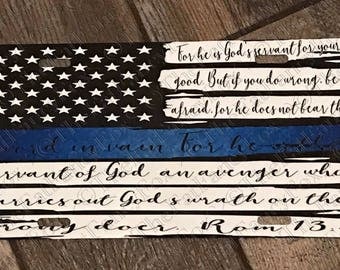 For he is God's servant for your
good. But if you do wrong, be
afraid, for he does not bear the
sword in vain For he
servant of God an avenger who
carries out God's wrath on the
wrong doer. Rom 13